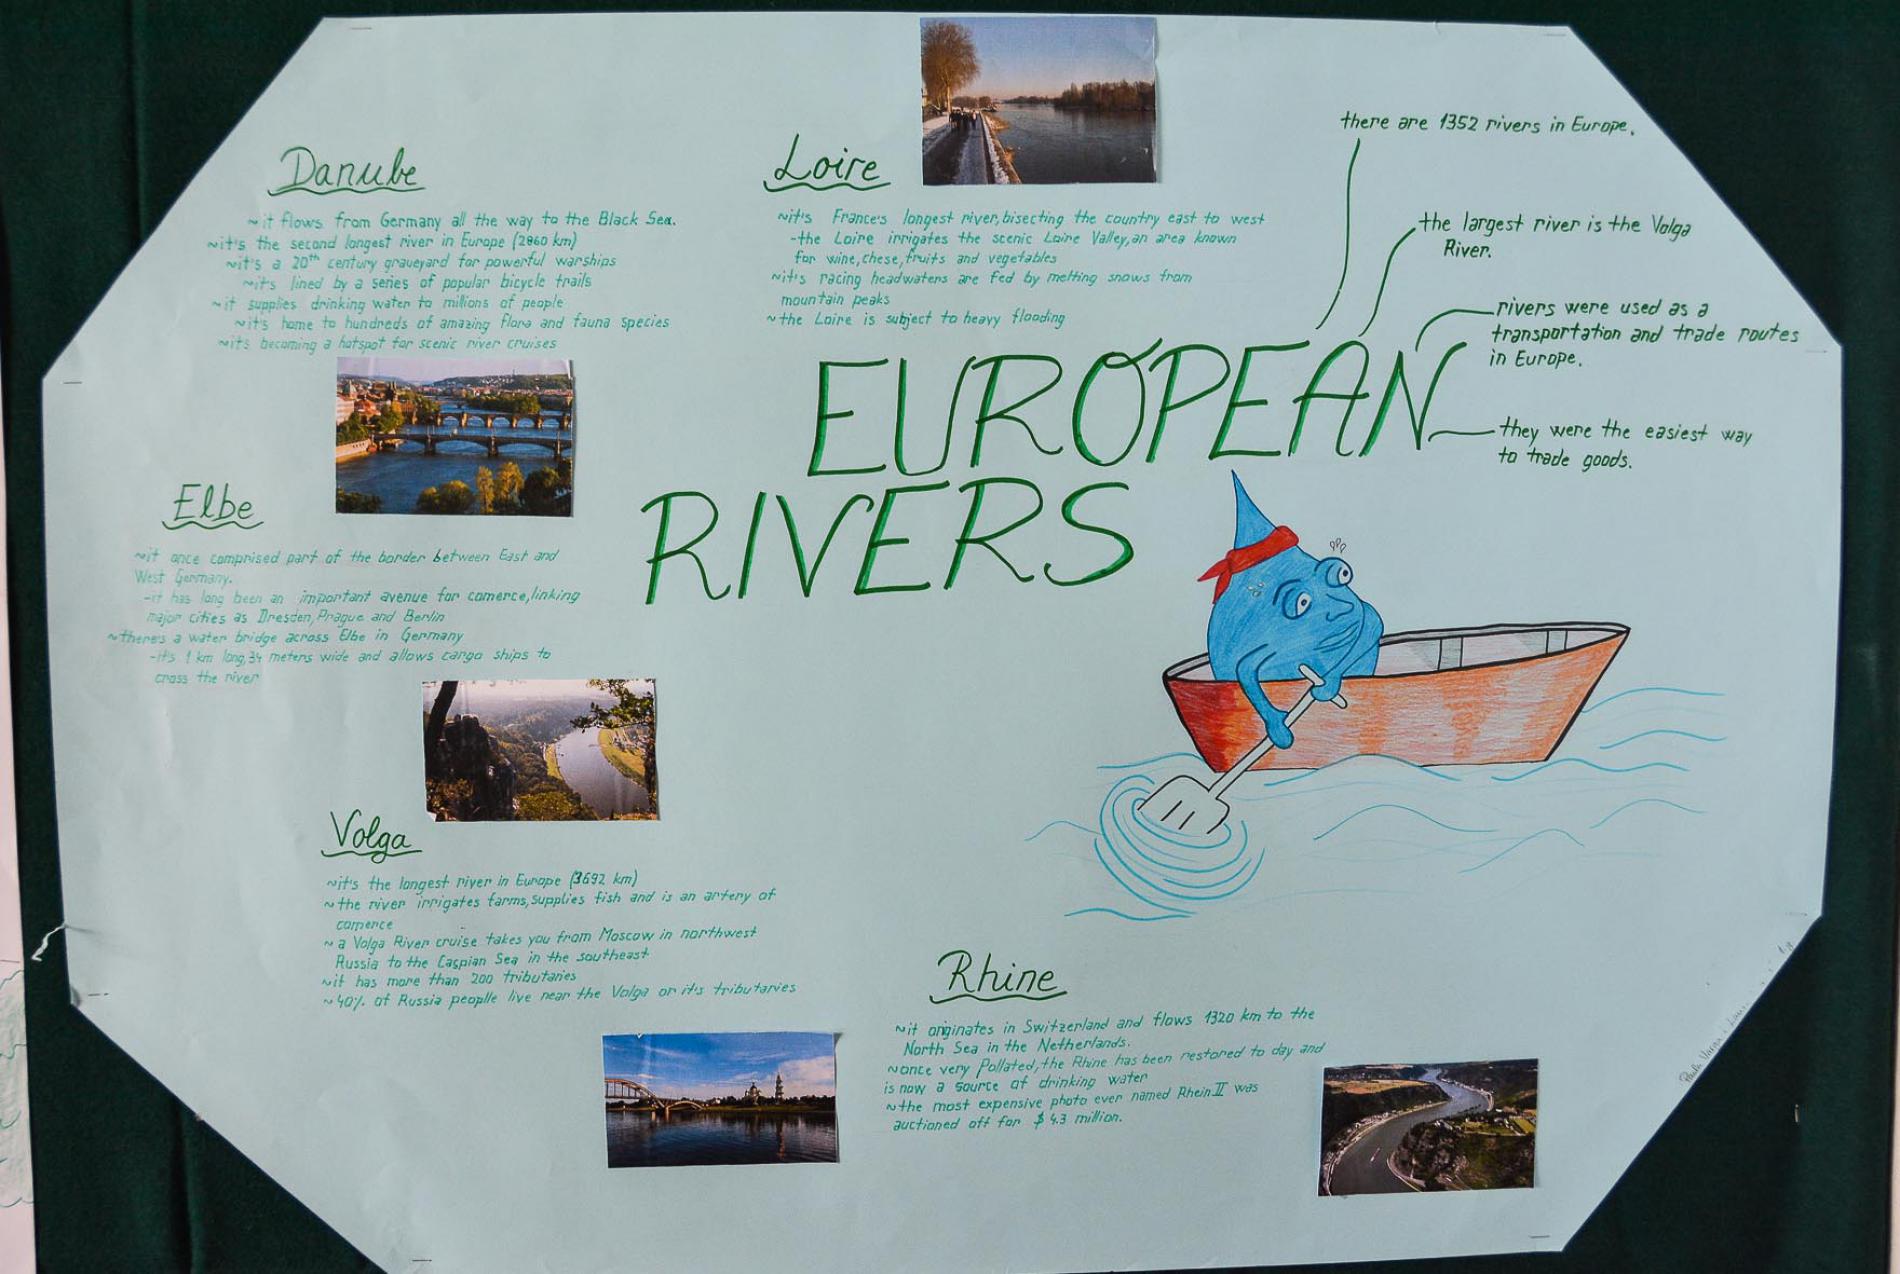 Danube
~it flows from Germany all the way to the Black Sea.
~it's the second longest river in Europe (2860 km)
~it's a 20th century graveyard for powerful warships
~it's lined by a series of popular bicycle trails
~it supplies drinking water to millions of people
~it's home to hundreds of amazing flora and fauna species
~its becoming a hotspot for scenic river cruises
Loire
~it's France's longest river, bisecting the country east to west
-the Loire irrigates the scenic Loire Valley, an area known
for wine, chese, fruits and vegetables
~it's racing headwaters are fed by melting snows from
mountain peaks
~the Loire is subject to heavy flooding
there are 1352 rivers in Europe.
the largest river is the Volga
River.
rivers were used as a
transportation and trade routes
in Europe.
they were the easiest way
to trade goods.
EUROPEAN
RIVERS
Elbe
~it once comprised part of the border between East and
West Germany.
-it has long been an important avenue for comerce, linking
major cities as Dresden, Prague and Berlin
~there's a water bridge across Elbe in Germany
-it's 1 km long, 34 meters wide and allows cargo ships to
cross the river
Volga
~it's the longest river in Europe (3692 km)
~the river irrigates farms, supplies fish and is an artery of
comerce
~a Volga River cruise takes you from Moscow in northwest
Russia to the Caspian Sea in the southeast
~it has more than 200 tributaries
~40% of Russia peoplle live near the Volga or it's tributaries
Rhine
~it originates in Switzerland and flows 1320 km to the
North Sea in the Netherlands.
~once very Pollated, the Rhine has been restored to day and
is now a source of drinking water
~the most expensive photo ever named Rhein II was
auctioned off for $ 4.3 million.